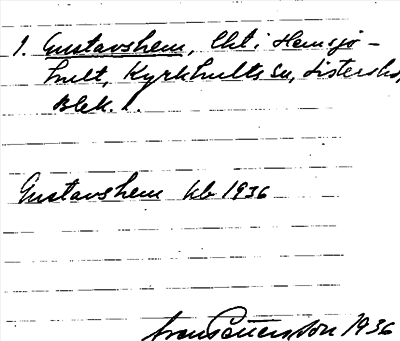 1. Gustavshem, lht i Hemsjö-
hult, Kyrkhults sn, Listers hd,
Blek.
Gustavshem kb 1936
1936